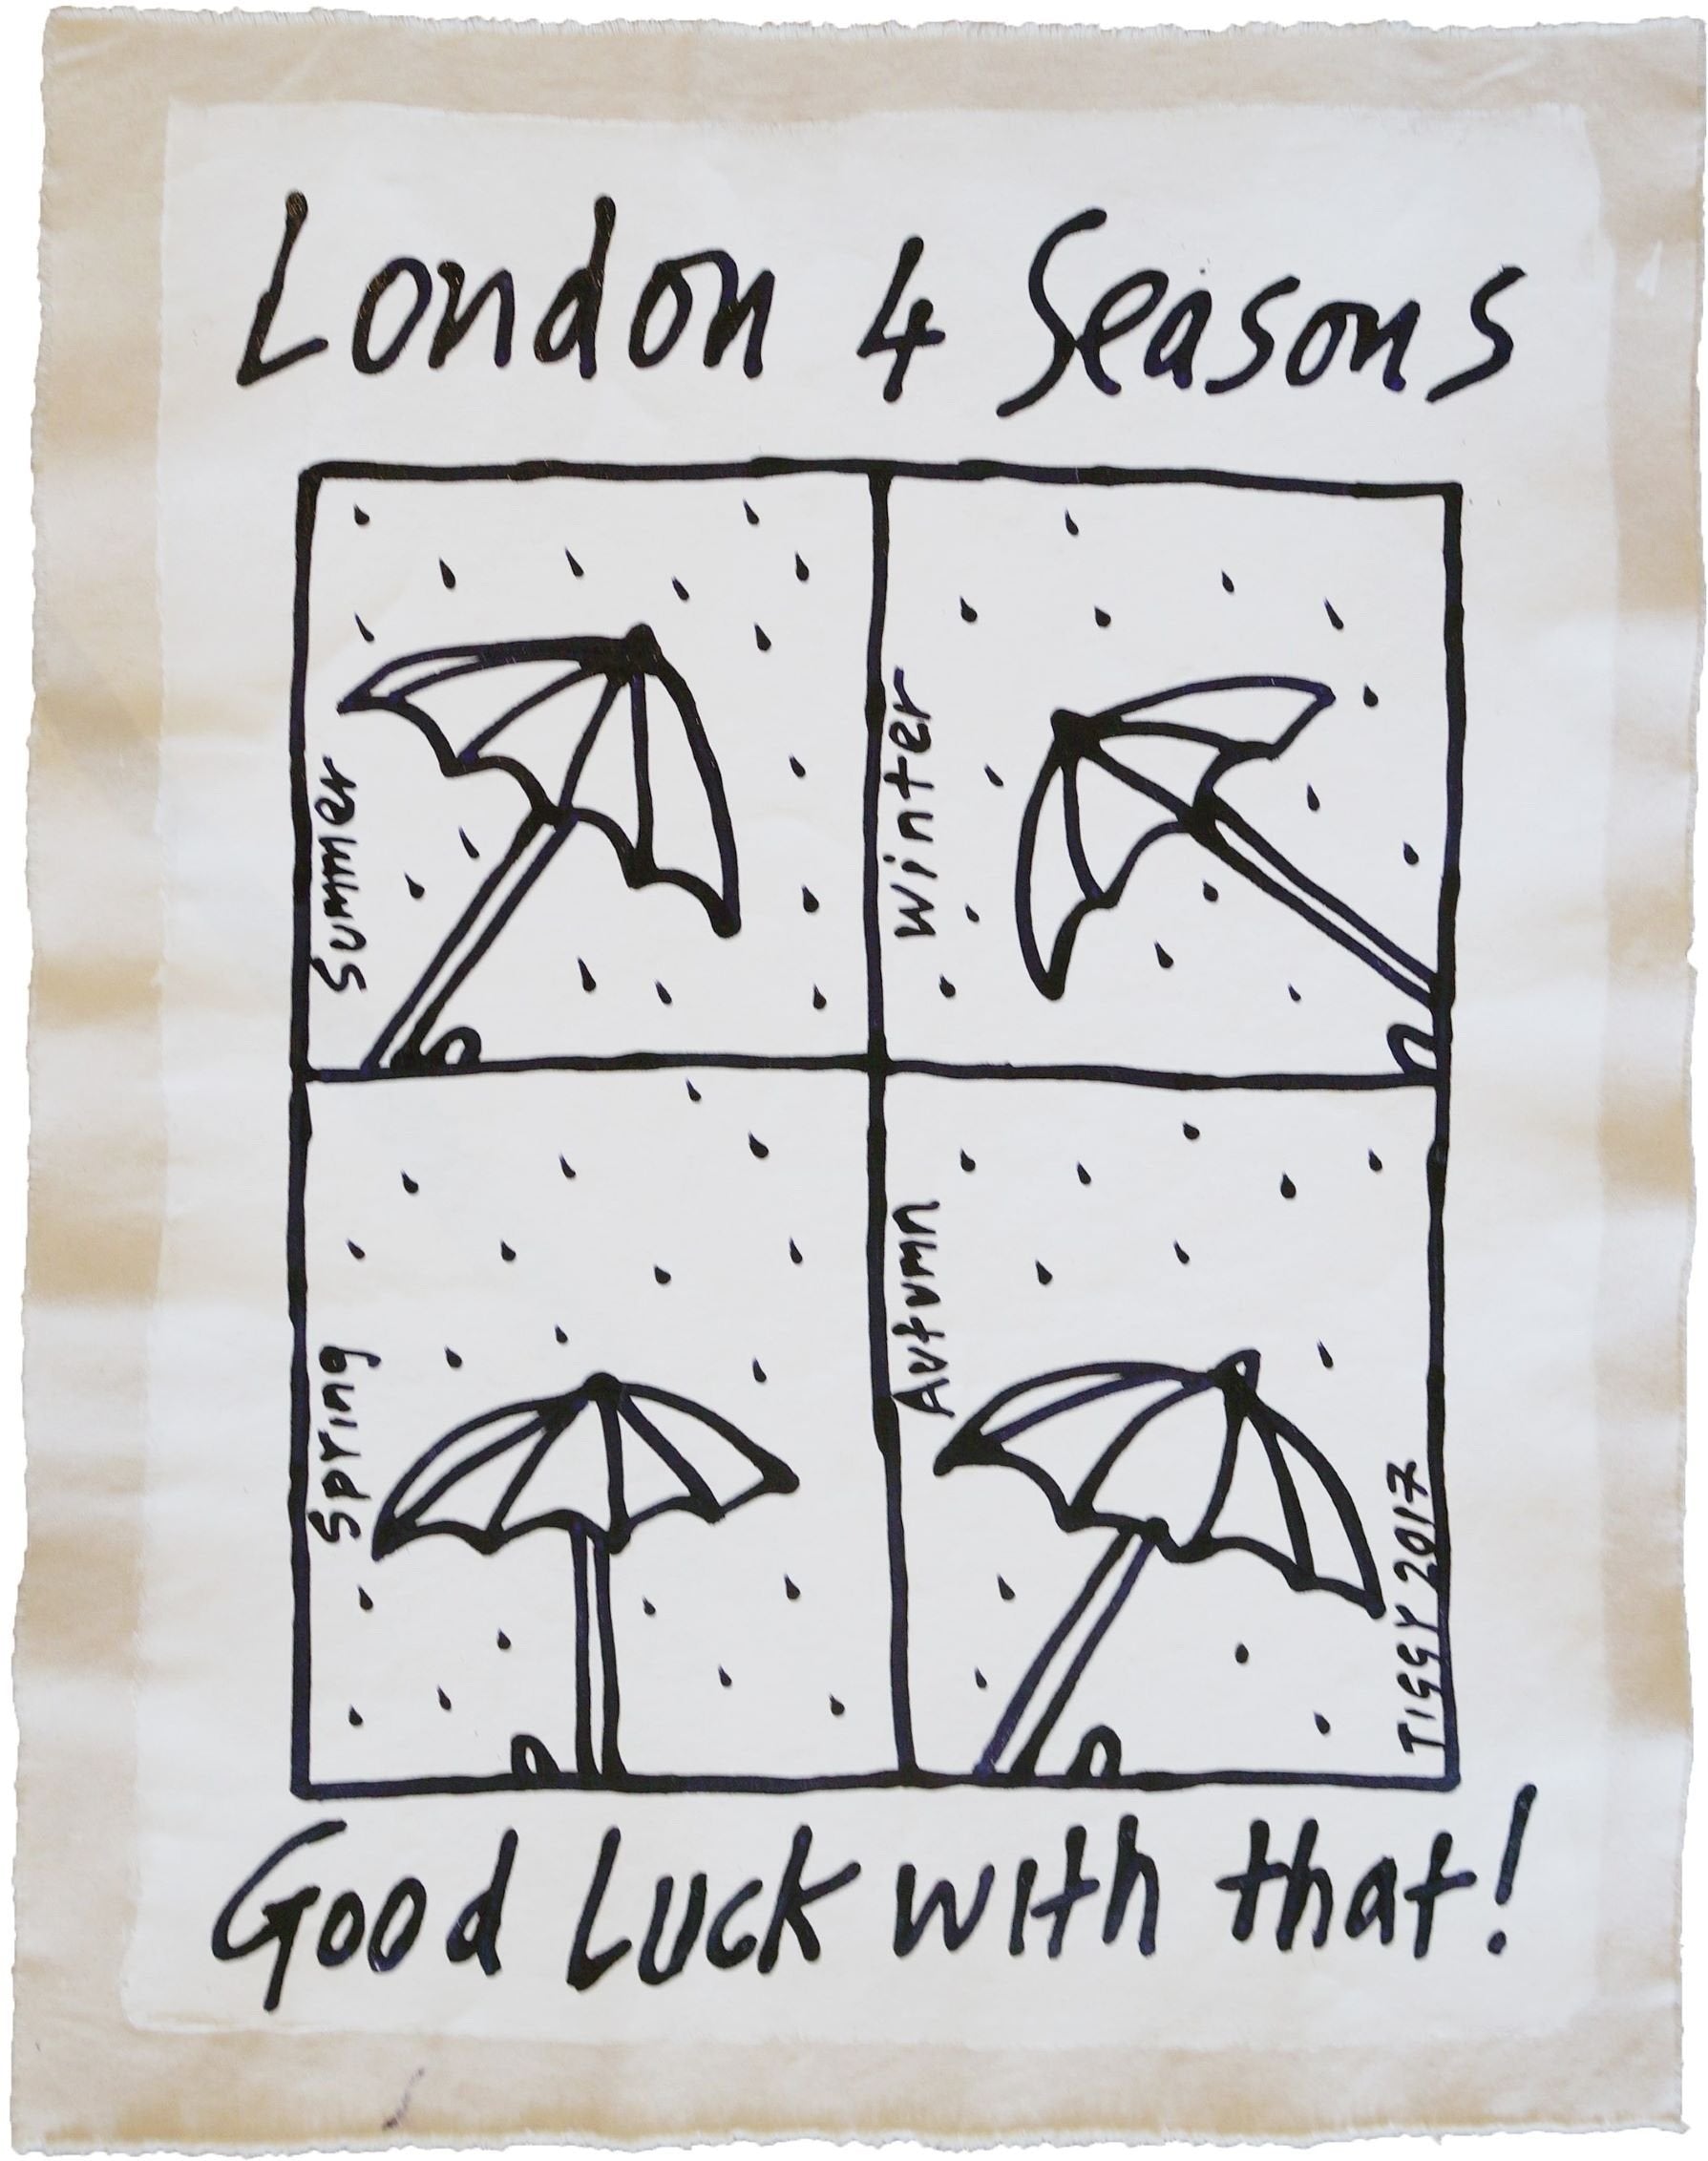 London 4 Seasons
Summer
Winter
Spring
Autumn
TIGGY 2017
Good Luck with that!